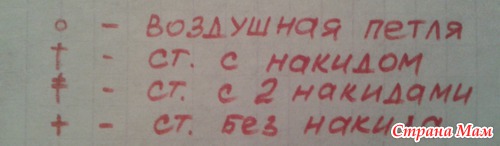 o - ВОЗДУШНАЯ ПЕТЛЯ
† - СТ. С НАКИДОМ
‡ - СТ. С 2 НАКИДАМИ
+ - СТ. БЕЗ НАКИДА
Страна Мам